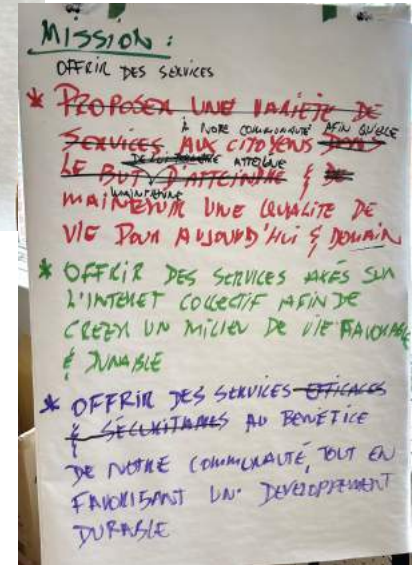 MISSION :
OFFRIR DES SERVICES
* PROPOSER UNE VARIÉTÉ DE
À NOTRE COMMUNAUTÉ AFIN QU'ELLE
SERVICES AUX CITOYENS DANS
ATTEIGNE
LE BUT D'ATTEINDRE & DE
MAINTIENNE
MAINTENIR UNE QUALITÉ DE
VIE POUR AUJOURD'HUI & DEMAIN
* OFFRIR DES SERVICES AXÉS SUR
L'INTERET COLLECTIF AFIN DE
CREER UN MILIEU DE VIE FAVORABLE
& DURABLE
* OFFRIR DES SERVICES EFFICACES
& SÉCURITAIRES AU BENEFICE
DE NOTRE COMMUNAUTÉ, TOUT EN
FAVORISANT UN DEVELOPPEMENT
DURABLE